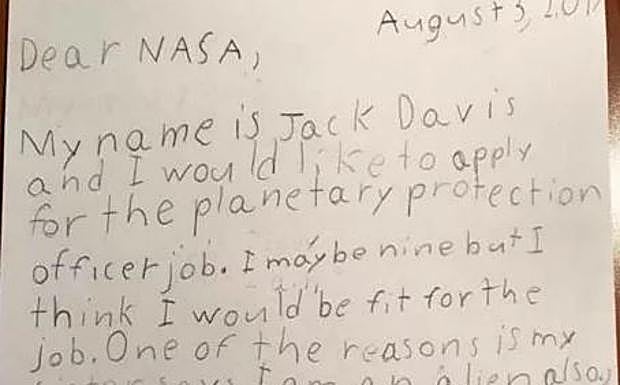 August 3, 201
Dear NASA,
My name is Jack Davis
and I would like to apply
for the planetary protection
officer job. I may be nine but I
think I would be fit for the
job. One of the reasons is my
sister says I am an alien also,